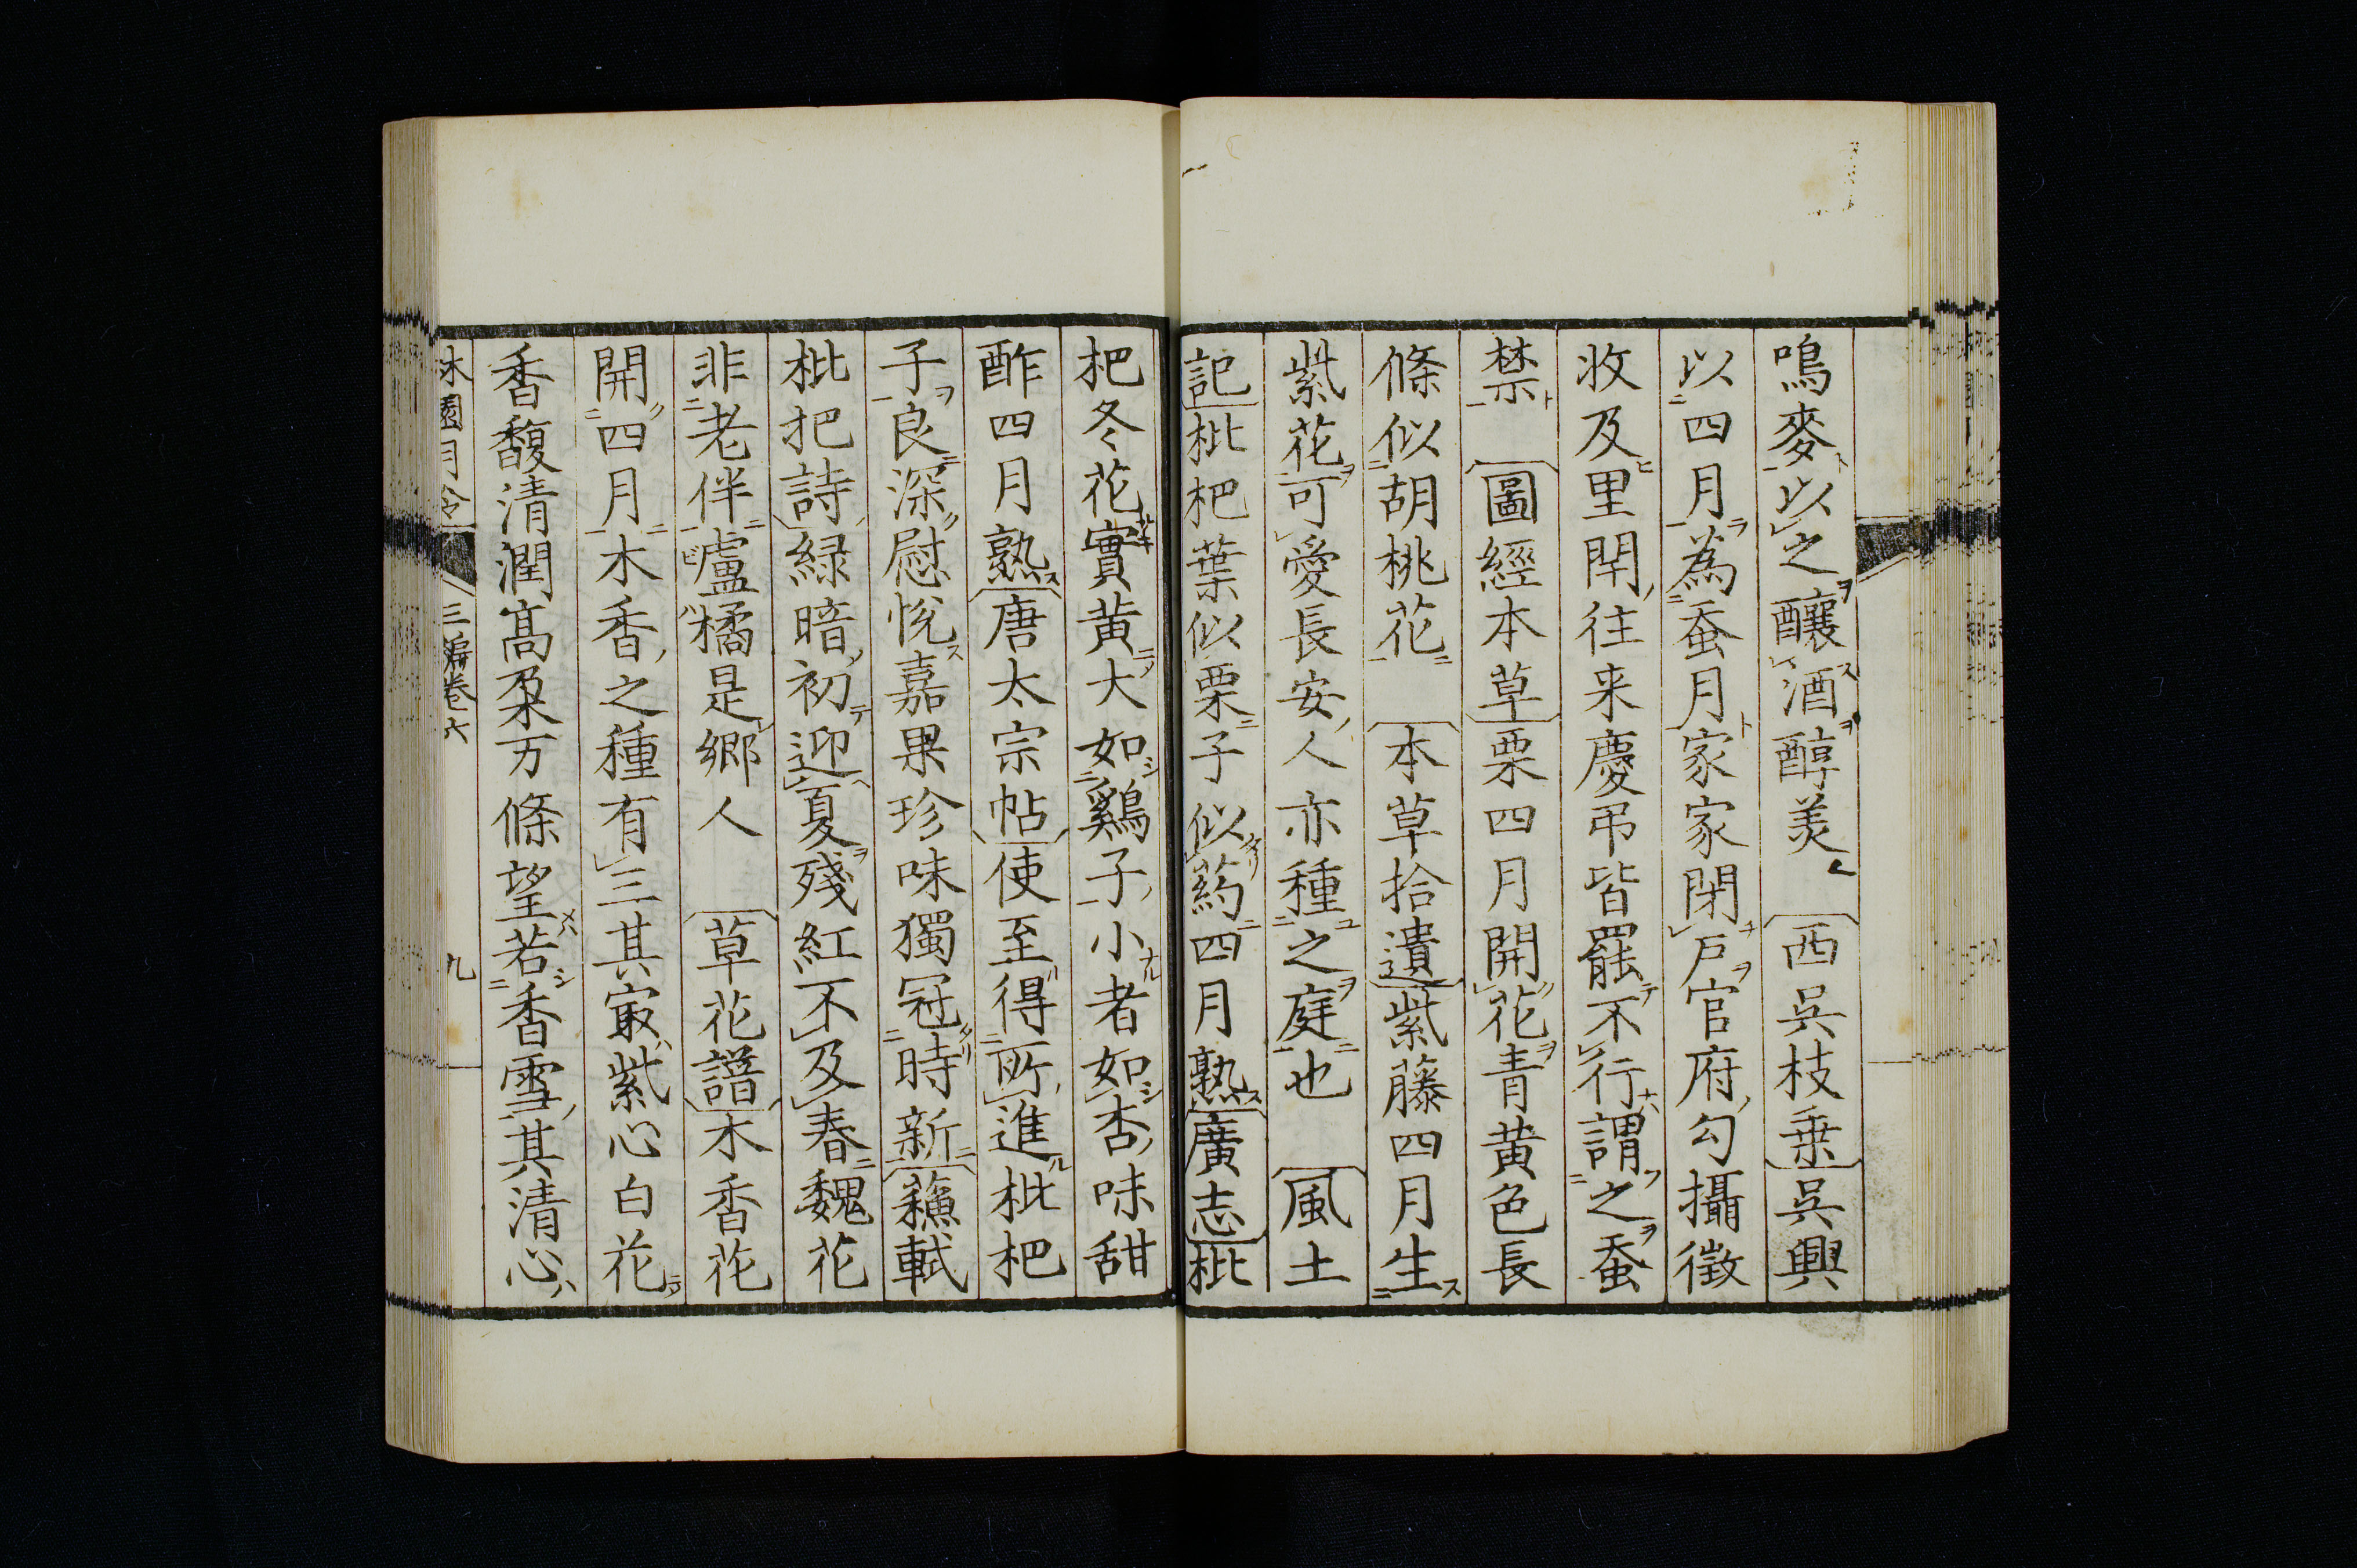 鳴麥以之釀酒醇美 西呉枝乗呉興
以四月為蚕月家家閉戸官府勾攝徴
收及里閈往来慶弔皆罷不行謂之蚕
禁 圖經本草栗四月開花青黄色長
條似胡桃花 本草拾遺紫藤四月生
紫花可愛長安人亦種之庭也 風土
記枇杷葉似栗子似葯四月熟廣志枇
杷冬花實黄大如鷄子小者如杏味甜
酢四月熟唐太宗帖使至得所進枇杷
子良深慰悅嘉果珍味獨冠時新蘓軾
枇杷詩緑暗初迎夏殘紅不及春魏花
非老伴盧橘是郷人 草花譜木香花
開四月木香之種有三其㝡紫心白花
香馥清潤髙朶万條望若香雪其清心
三編巻六
九